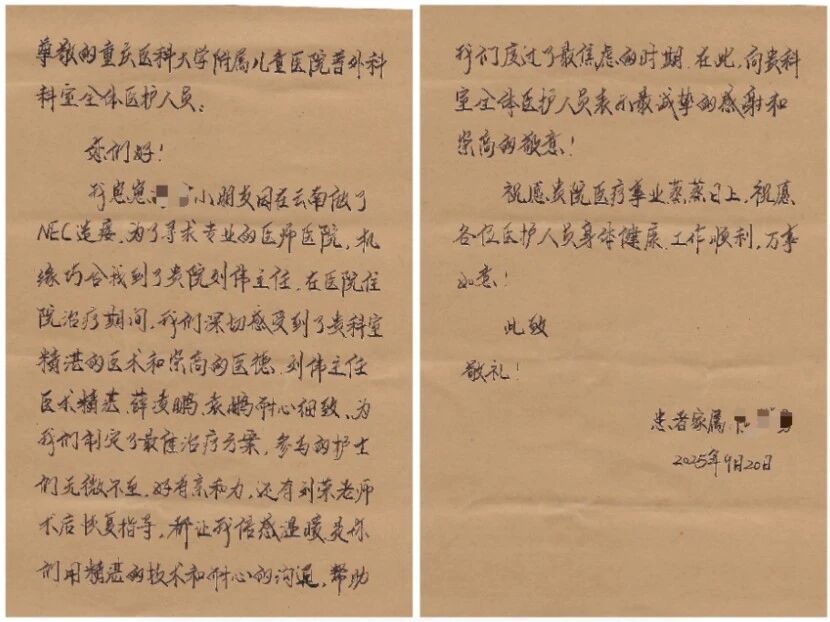 尊敬的重庆医科大学附属儿童医院普外科
科室全体医护人员:
你们好!
我患患 小朋友因在云南做了
NEC造瘘,为了寻求专业的医师医院,机
缘巧合找到了贵院刘伟主任,在医院住
院治疗期间,我们深切感受到了贵科室
精湛的医术和崇高的医德,刘伟主任
医术精湛,薛凌鹏、袁鹏耐心细致、为
我们制定了最佳治疗方案,参与的护士
们无微不至,好有亲和力,还有刘荣老师
术后恢复指导,都让我倍感温暖,是你
们用精湛的技术和耐心的沟通,帮助
我们度过了最焦虑的时期,在此,向贵科
室全体医护人员表示最诚挚的感谢和
崇高的敬意!
祝愿贵院医疗事业蒸蒸日上,祝愿
各位医护人员身体健康,工作顺利,万事
如意!
此致
敬礼!
患者家属:
2025年9月20日